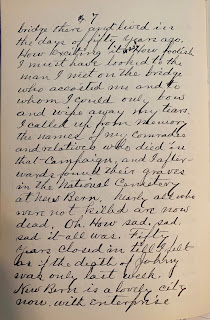 7
bridge there and lived in
the days of fifty years ago.
How exciting it is. How foolish
I must have looked to the
man I met on the bridge
who accosted me and to
whom I could only, bow
and wipe away my tears.
I called up from memory
the names of my comrades
and relatives who died in
that Campaign, and I after-
wards found their graves
in the National Cemetery
at New Bern. Nearly all who
were not killed are now
dead. Oh. How sad, sad,
sad it all was. Fifty
years closed in till I felt
as if the death of Johnny
was only last week.
New Bern is a lovely city
now. with enterprise